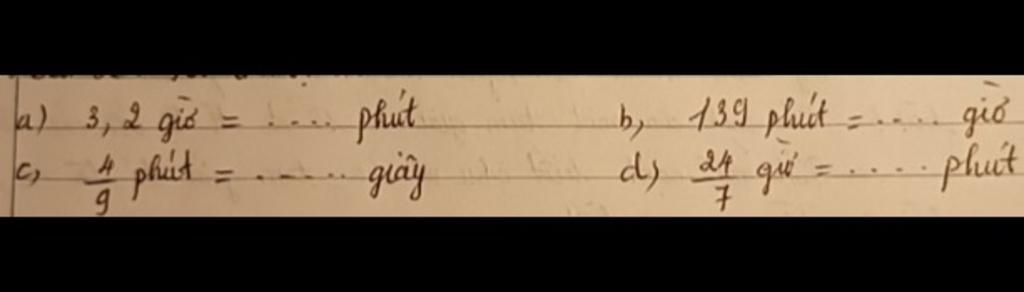 a) 3,2 giờ = .... phút b, 139 phút = .... giờ
c, 4/9 phút = ...... giây d) 24/7 giờ = .... phút